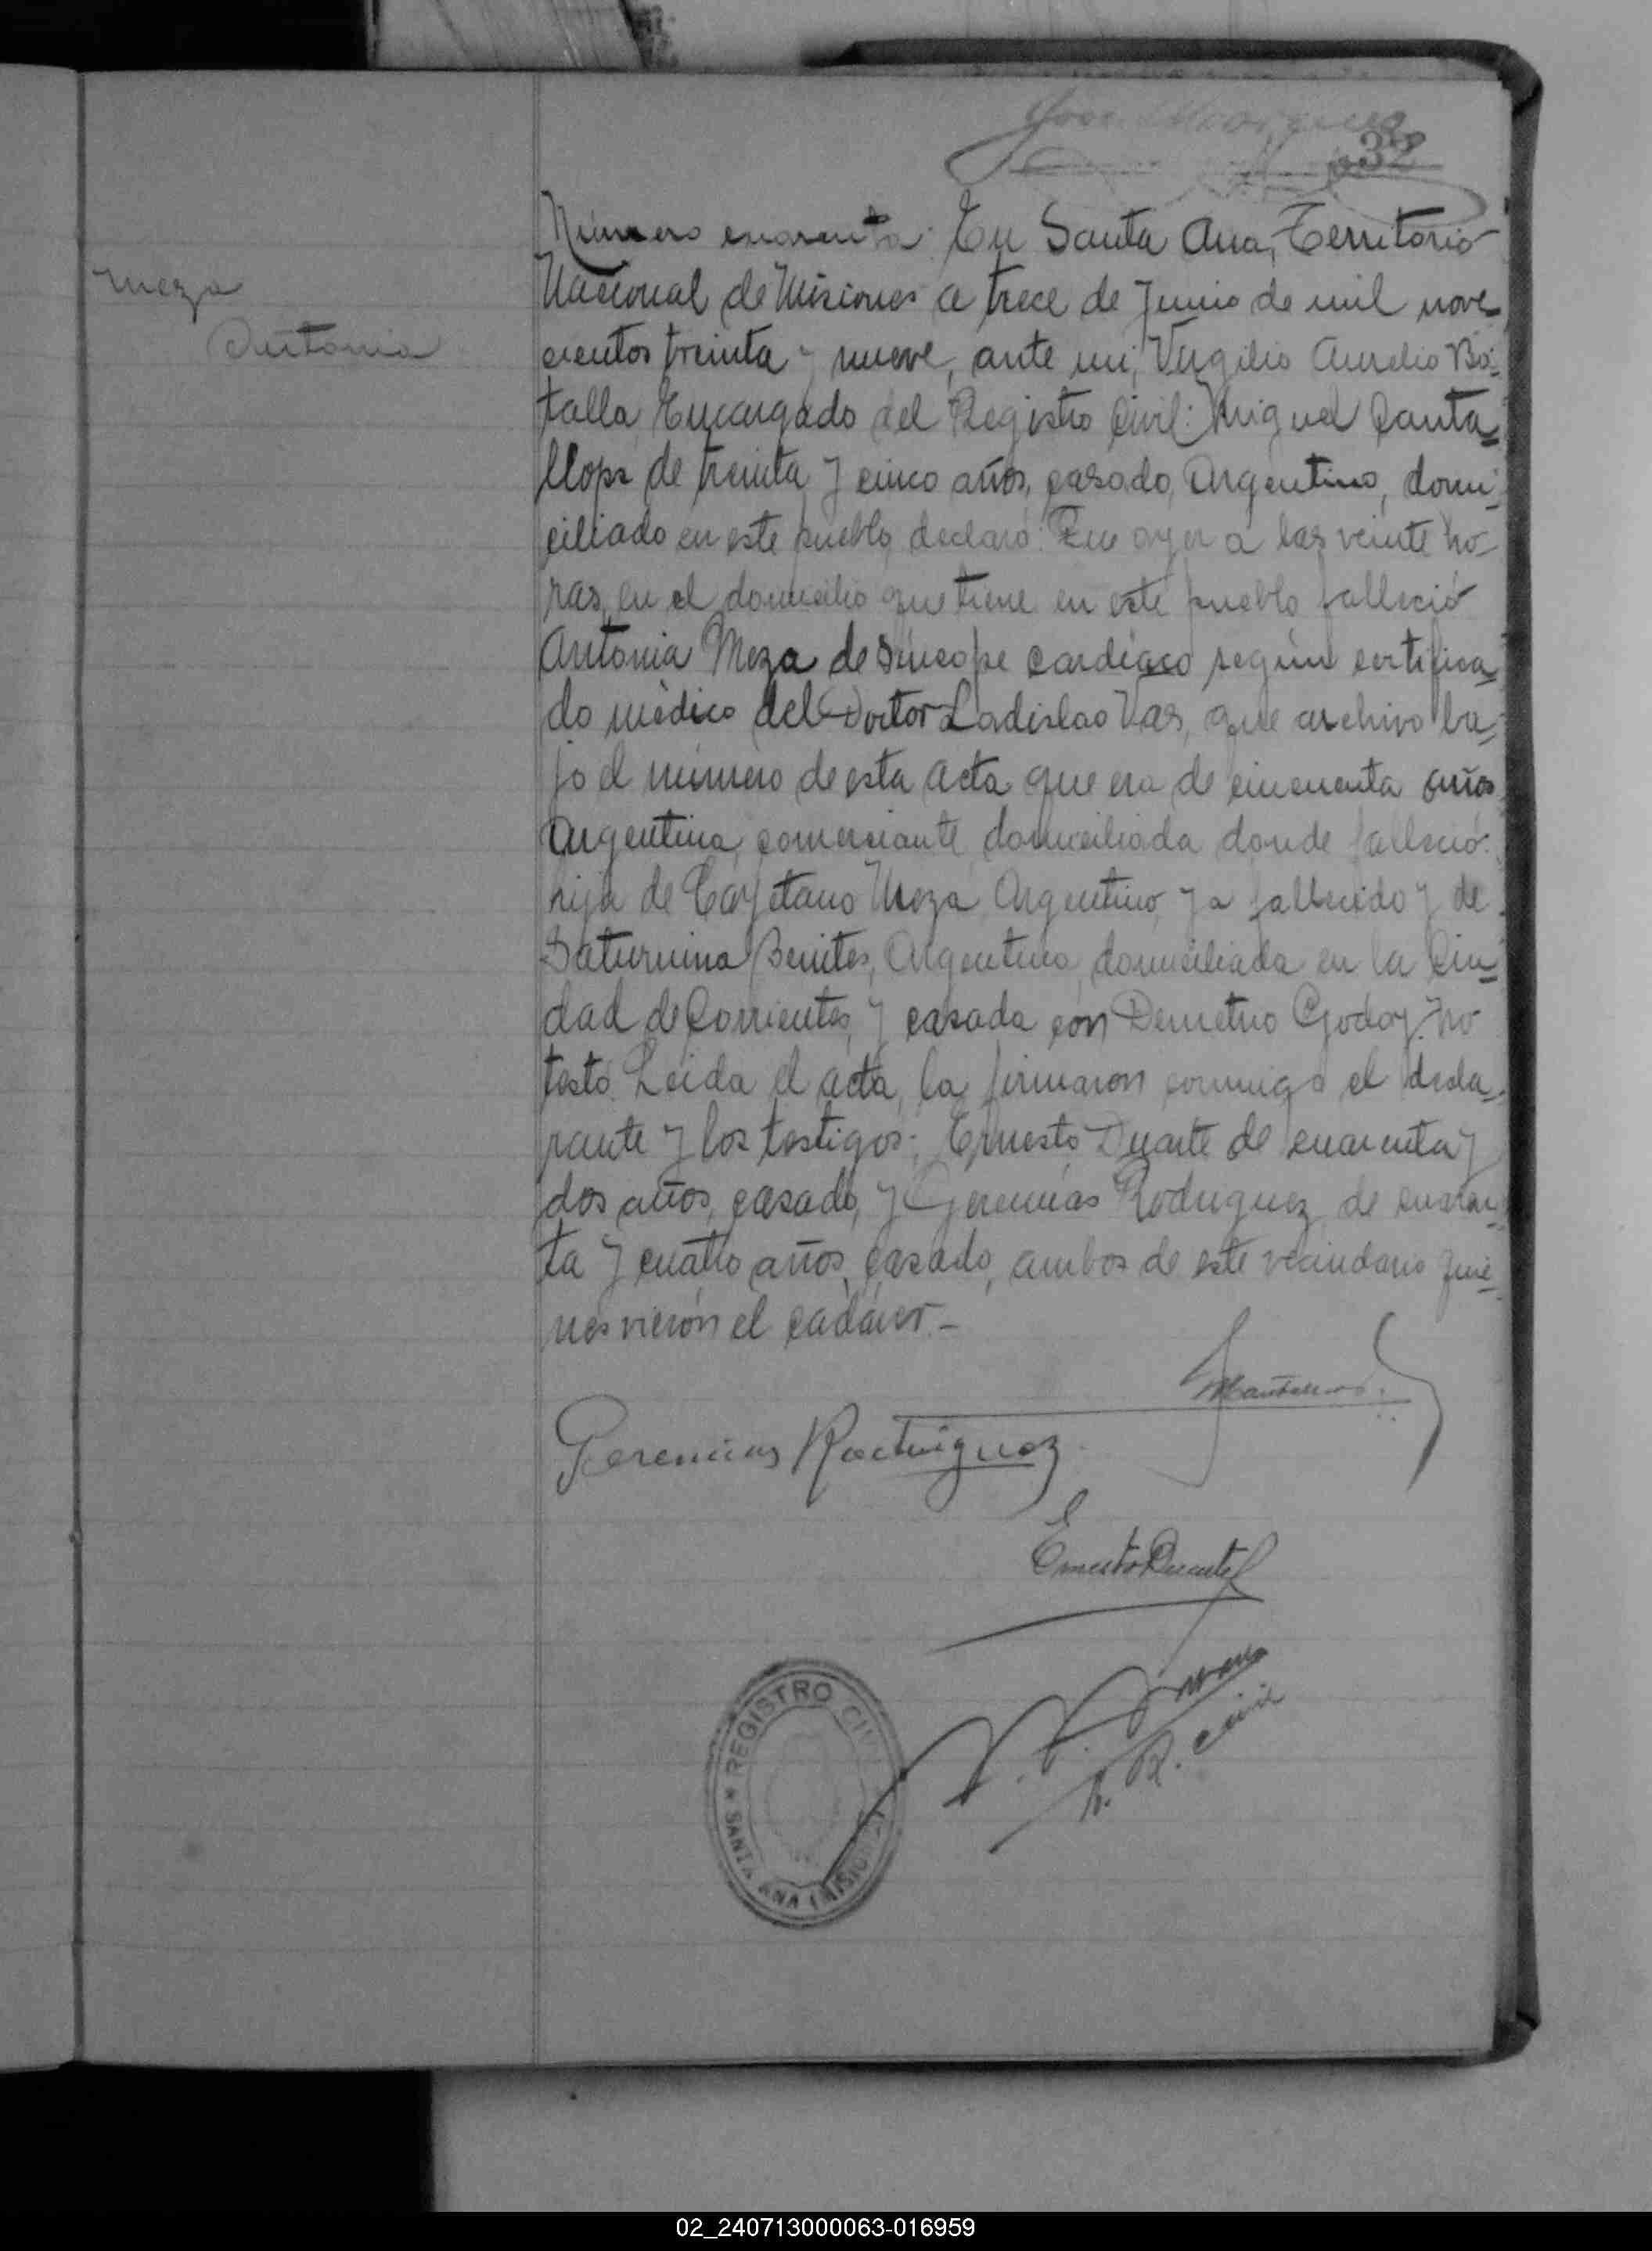 32
Número cuarenta: En Santa Ana, Territorio
Meza
Nacional de Misiones a trece de Junio de mil nove-
Antonia
cientos treinta y nueve, ante mi, Virgilio Aurelio Bo-
talla, Encargado del Registro Civil: Miguel Canta-
llops de treinta y cinco años, casado, Argentino, domi-
ciliado en este pueblo, declaró: Que ayer a las veinte ho-
ras, en el domicilio que tiene en este pueblo falleció
Antonia Meza de síncope cardíaco según certifica-
do médico del Doctor Ladislao Vas, que archivo ba-
jo el número de esta acta que era de cincuenta años
Argentina, comerciante, domiciliada donde falleció:
hija de Cayetano Meza, Argentino, ya fallecido y de
Saturnina Benites, Argentina, domiciliada en la Ciu-
dad de Corrientes, y casada con Demetrio Godoy. No
testó. Leida el acta, la firmaron conmigo el decla-
rante y los testigos: Ernesto Duarte de cuarenta y
dos años, casado, y Geremías Rodriguez, de cuaren-
ta y cuatro años, casado, ambos de este vecindario quie-
nes vieron el cadáver.-
Geremias Rodriguez
Ernesto Duarte
R. Civil
REGISTRO CIVIL
SANTA ANA (MISIONES)
02_240713000063-016959